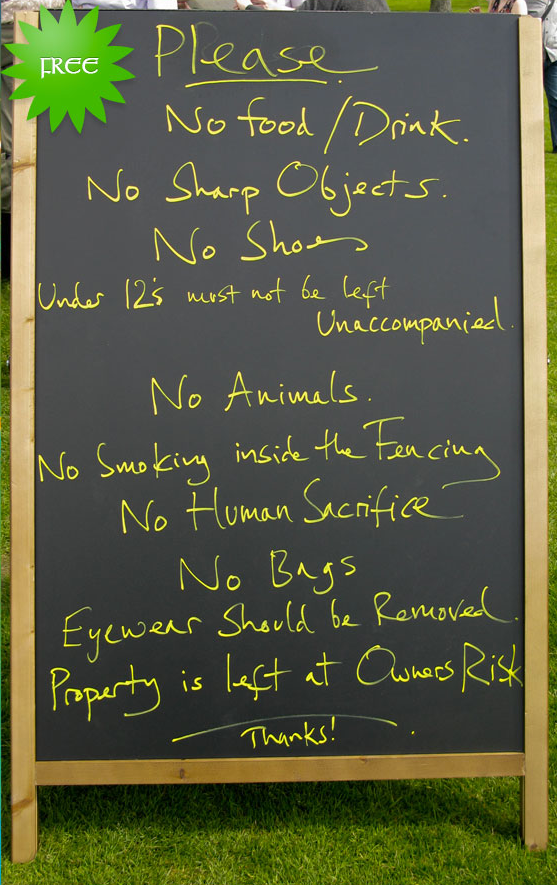 FREE
Please
No food / Drink.
No Sharp Objects.
No Shoes
Under 12's must not be left
Unaccompanied.
No Animals.
No Smoking inside the Fencing
No Human Sacrifice
No Bags
Eyewear Should be Removed.
Property is left at Owners Risk
Thanks!